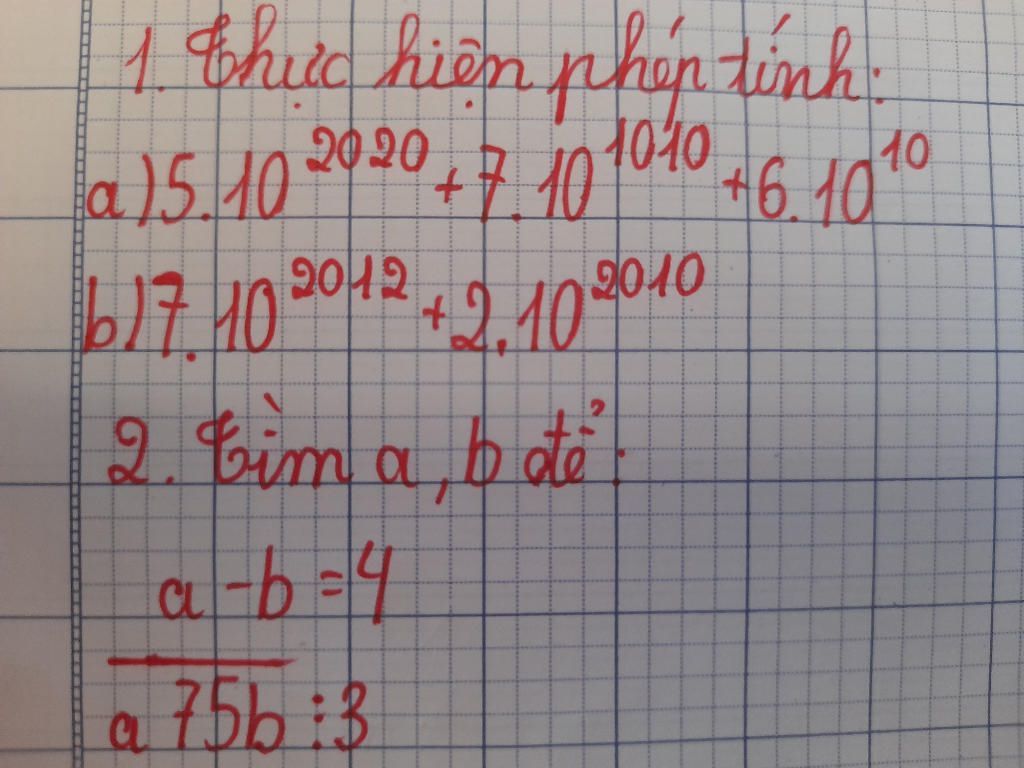 1. Thực hiện phép tính:
a) 5.10²⁰²⁰ + 7.10¹⁰¹⁰ + 6.10¹⁰
b) 7.10²⁰¹² + 2.10²⁰¹⁰
2. Tìm a, b để:
a - b = 4
a̅7̅5̅b̅ ⋮ 3